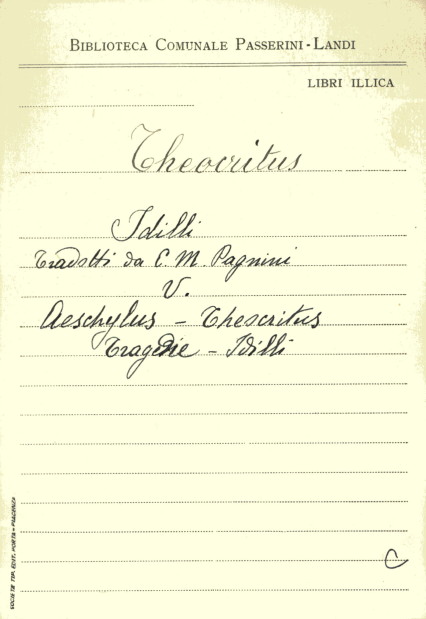 BIBLIOTECA COMUNALE PASSERINI-LANDI
LIBRI ILLICA
Theocritus
Idilli
tradotti da C. M. Pagnini
V.
Aeschylus - Theocritus
Tragedie - Idilli
C
SOCIETÀ TIP. EDIT. PORTA - PIACENZA